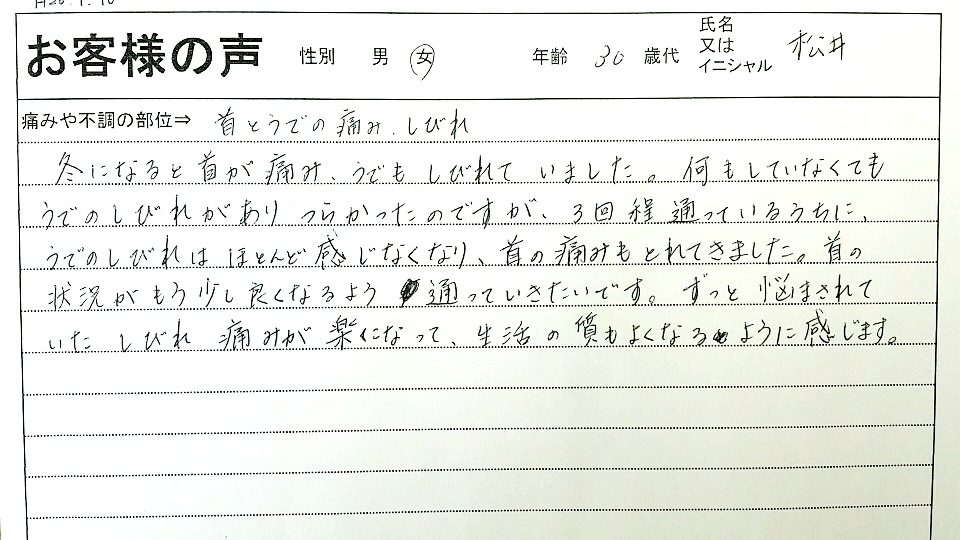 お客様の声 性別 男 女 年齢 30 歳代 氏名又はイニシャル 松井
痛みや不調の部位⇒ 首とうでの痛み、しびれ
冬になると首が痛み、うでもしびれていました。何もしていなくても
うでのしびれがありつらかったのですが、3回程通っているうちに、
うでのしびれはほとんど感じなくなり、首の痛みもとれてきました。首の
状況がもう少し良くなるよう通っていきたいです。ずっと悩まされて
いたしびれ痛みが楽になって、生活の質もよくなるように感じます。